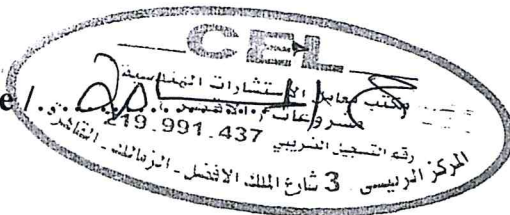 CEL
مكتب معامل الاستشارات الهندسية
رقم التسجيل الضريبي 219.991.437
المركز الرئيسي 3 شارع الملك الافضل - الزمالك - القاهرة